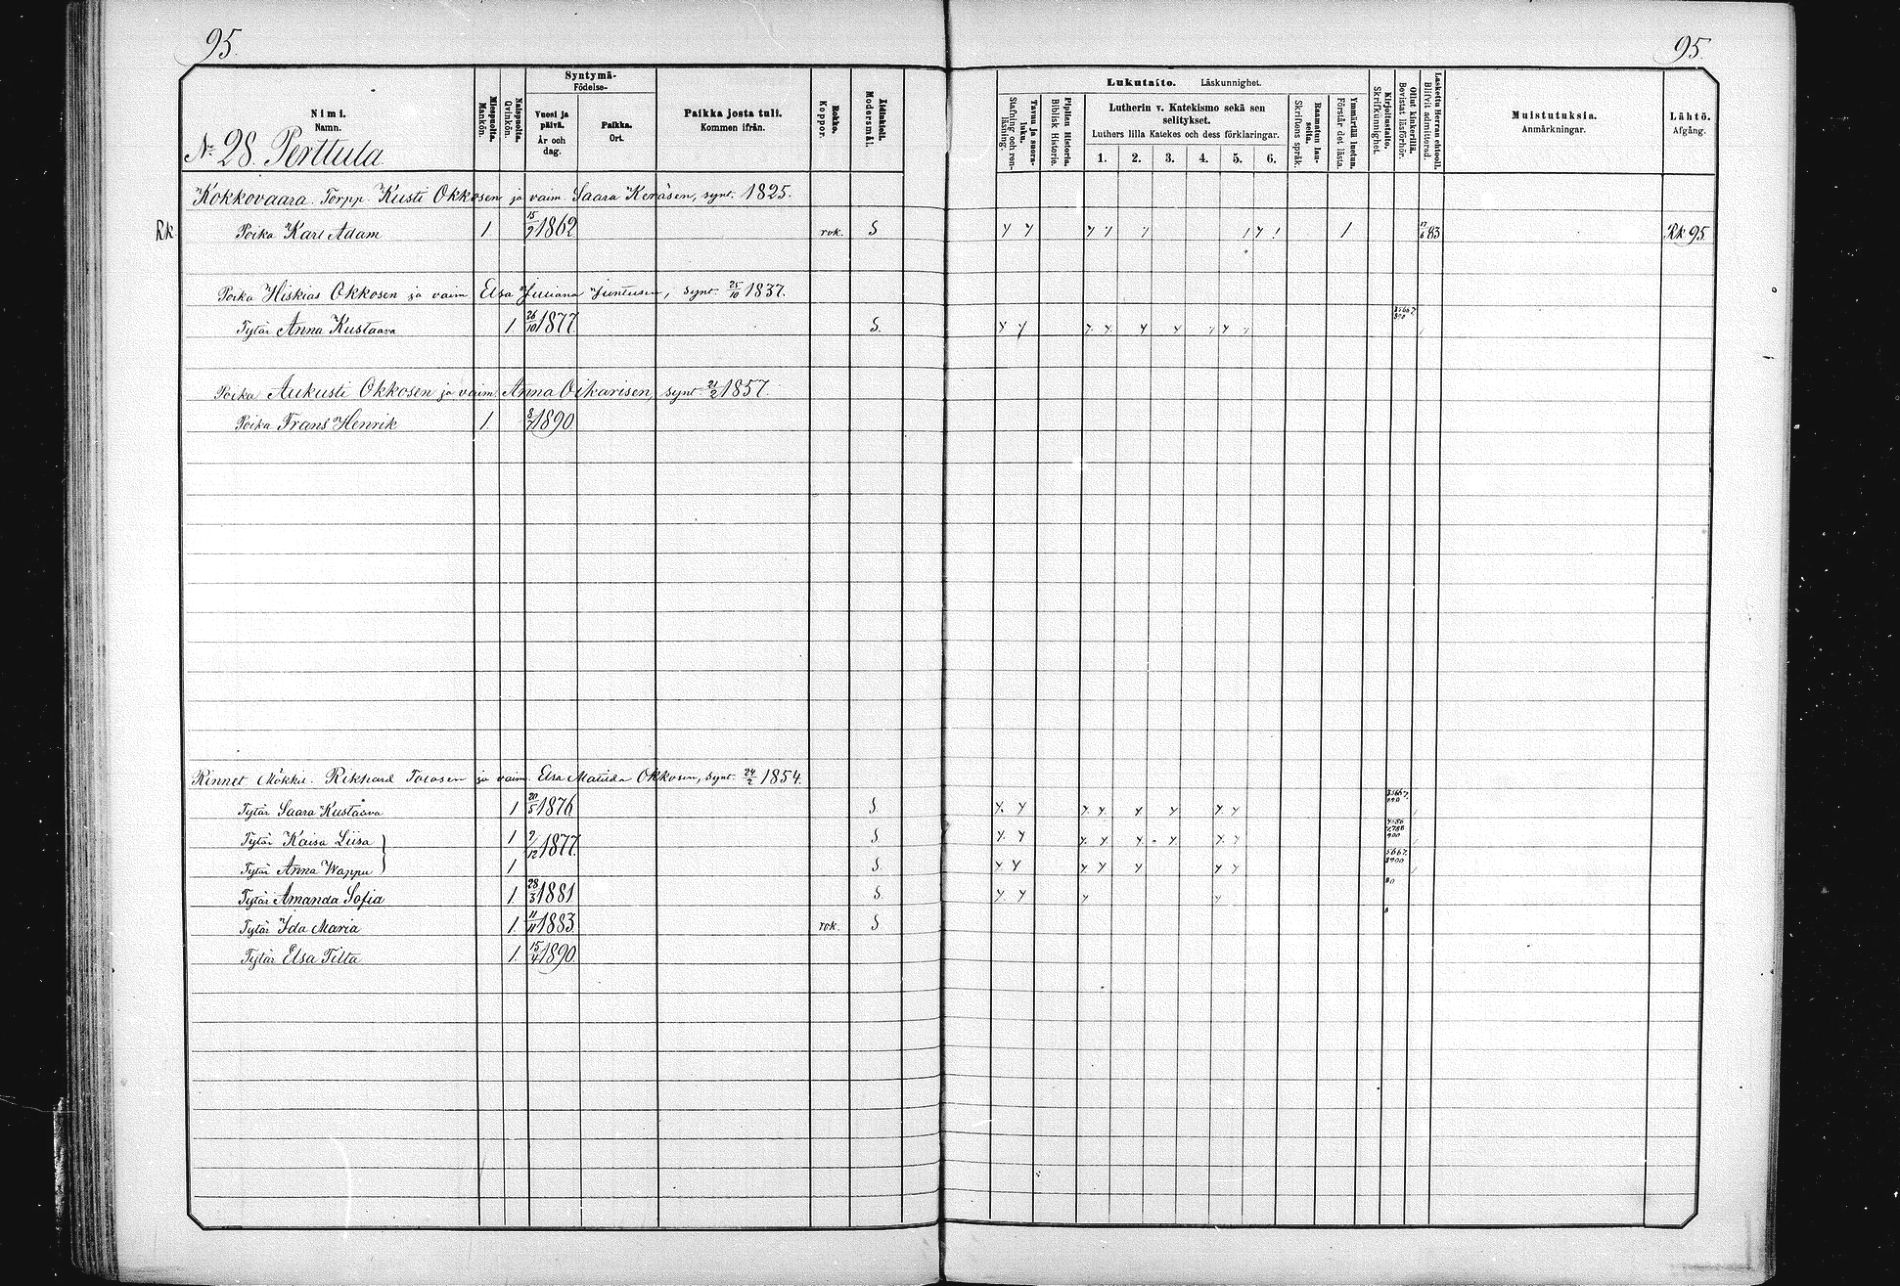 95.
95.
Nimi.
Namn.
Miespuolta.
Mankön.
Naispuolta.
Qvinkön.
Syntymä-
Födelse-
Vuosi ja päivä.
År och dag.
Paikka.
Ort.
Paikka josta tuli.
Kommen ifrån.
Rokko.
Koppor.
Äidinkieli.
Modersmål.
Lukutaito. Läskunnighet.
Tavuu ja suora-luku.
Stafning och ren-läsning.
Piplian Historia.
Biblisk Historie.
Lutherin v. Katekismo sekä sen selitykset.
Luthers lilla Katekes och dess förklaringar.
1. 2. 3. 4. 5. 6.
Raamatun lau-seita.
Skriftens språk.
Ymmärtää luetun.
Förstår det lästa.
Kirjoitustaito.
Skrifkunnighet.
Ollut kinkerillä.
Bevistat läsförhör.
Laskettu Herran ehtooll.
Blifvit admitterad.
Muistutuksia.
Anmärkningar.
Lähtö.
Afgång.
No 28. Perttula
Kokkovaara. Torpp. Kusti Okkosen ja vaim. Saara Keräsen, synt. 1825.
Rk Poika Karl Adam 1 15/7 1862 rok. S 17/6 83 Rk 95
Poika Hiskias Okkosen ja vaim Elsa Juliana Juntusen, synt. 25/10 1837.
Tytär Anna Kustaava 1 26/10 1877 S.
Poika Aukusti Okkosen ja vaim. Anna Oikarisen, synt. 21/2 1857.
Poika Frans Henrik 1. 8/7 1890
Rinnet Mökki. Rikhard Tolosen ja vaim. Elsa Matilda Okkosen, synt. 24/2 1854.
Tytär Saara Kustaava 1 20/5 1876 S
Tytär Kaisa Liisa 1 9/12 1877. S
Tytär Anna Wappu 1 S
Tytär Amanda Sofia 1 28/3 1881 S
Tytär Ida Maria 1. 11/11 1883 rok. S
Tytär Elsa Tilta 1. 15/4 1890